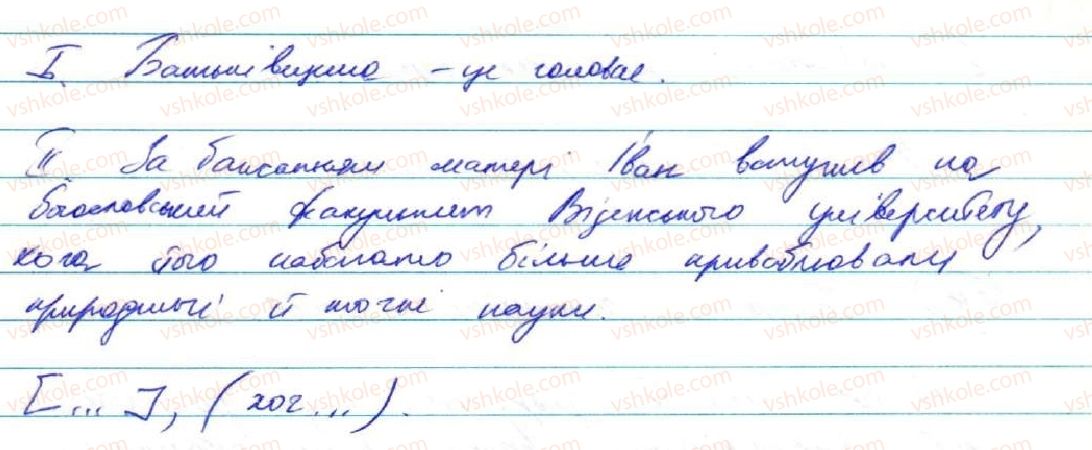 I. Батьківщина – це головне.
II За бажанням матері Іван вступив на
богословський факультет Віденського університету,
хоча його набагато більше приваблювали
природничі й точні науки.
[... ], (хоч...).